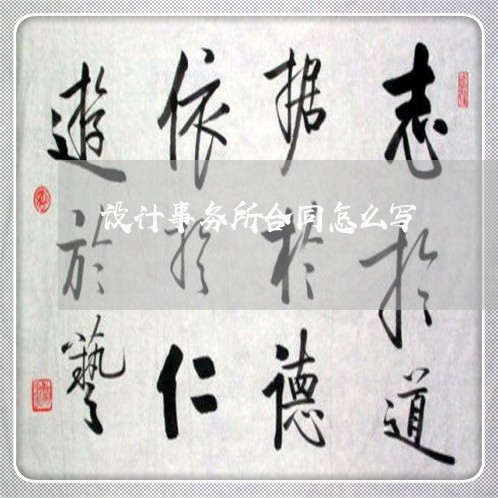 志於道
据於德
依於仁
遊於藝
设计事务所合同怎么写